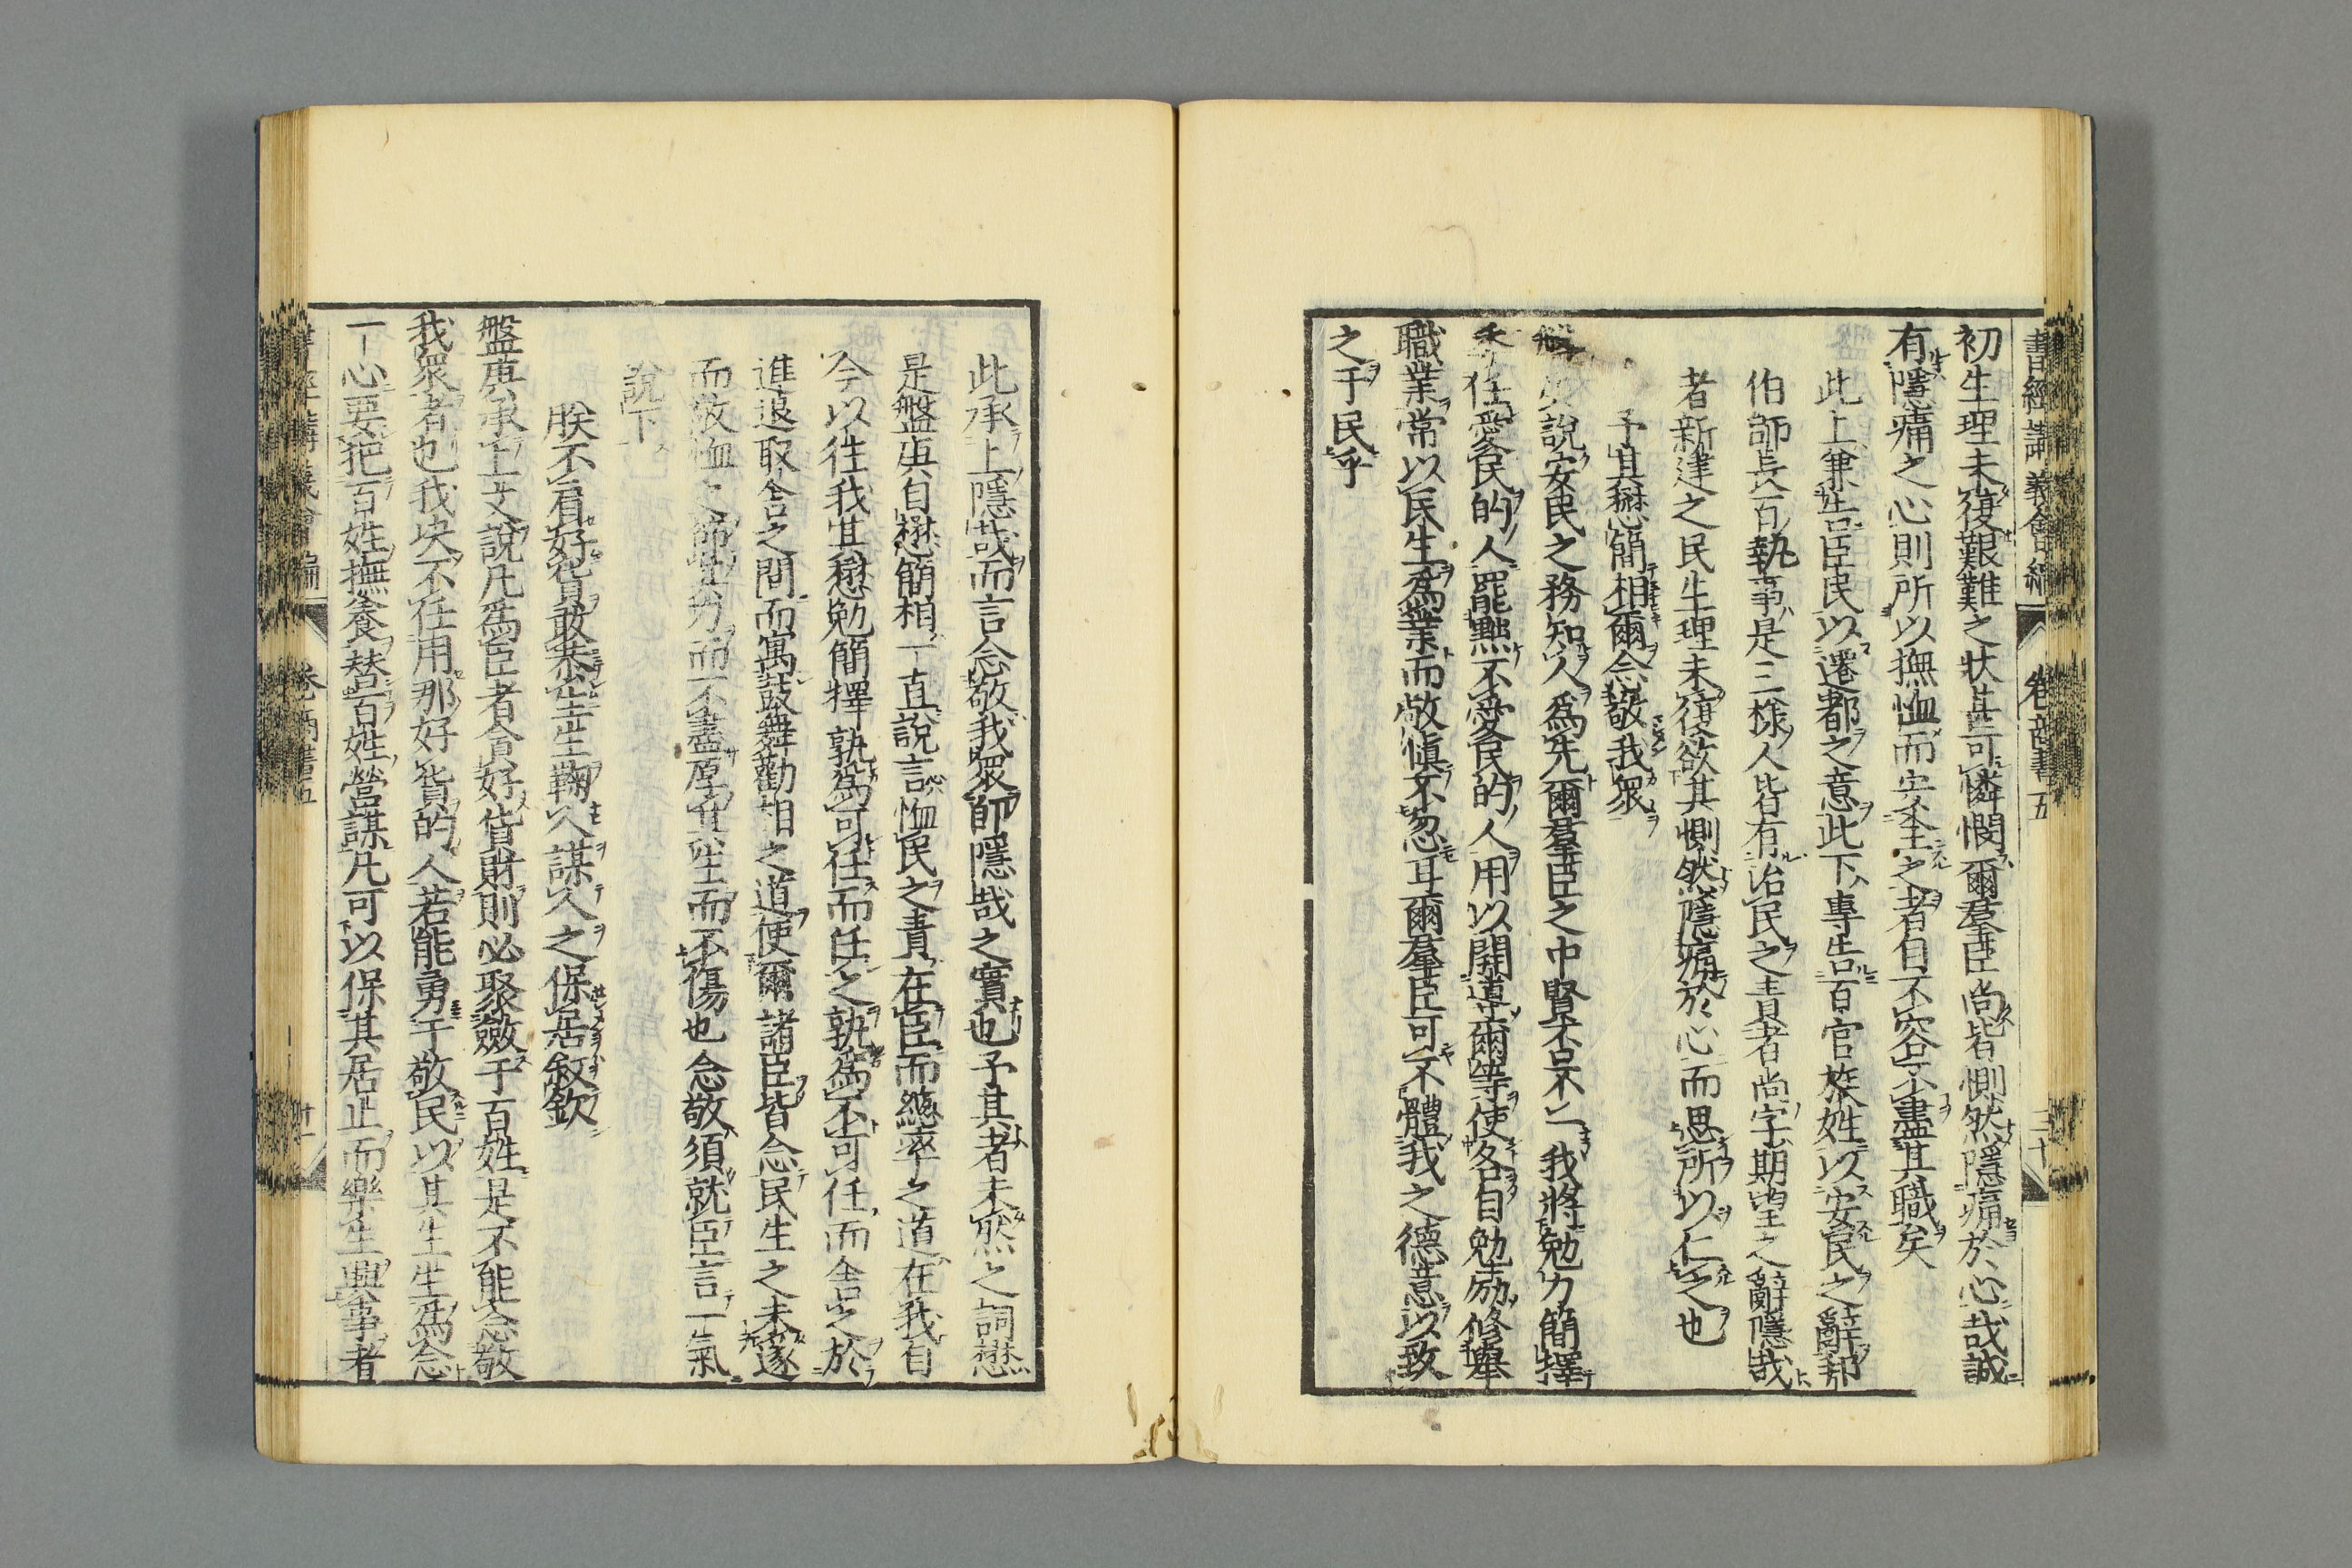 書經講義會編 卷商書五 三十
初生理未復艱難之狀甚可憐憫爾羣臣尚皆惻然隱痛於心哉誠
有隱痛之心則所以撫恤而安全之者自不容不盡其職矣
此上兼告臣民以遷都之意此下專告百官族姓以安民之辭邦
伯師長百執事是三樣人皆有治民之責者尚字期望之辭隱哉
者新遷之民生理未復欲其惻然隱痛於心而思所以仁之也
予其懋簡相爾念敬我衆
盤 說安民之務知人爲先爾羣臣之中賢否不一我將勉力簡擇
任愛民的人罷黜不愛民的人用以開導爾等使各自勉勵修舉
職業常以民生爲業而敬愼不忽耳爾羣臣可不體我之德意以致
之于民乎
此承上隱哉而言念敬我衆師隱哉之實也予其者未然之詞懋
是盤庚自懋簡相一直說言恤民之責在臣而總率之道在我自
今以往我其懋勉簡擇孰爲可任而任之孰爲不可任而舍之於
進退取舍之間而寓鼓舞勸相之道使爾諸臣皆念民生之未遂
而敬恤之節其力而不盡厚其生而不傷也念敬須就臣言一氣
說下
朕不肩好貨敢恭生生鞠人謀人之保居敘欽
盤庚承上文說凡爲臣者貪好貨財則必聚斂于百姓是不能念敬
我衆者也我決不任用那好貨的人若能勇于敬民以其生生爲念
一心要把百姓撫養替百姓營謀凡可以保其居止而樂生興事者
書經講義會編 卷商書五 卅一